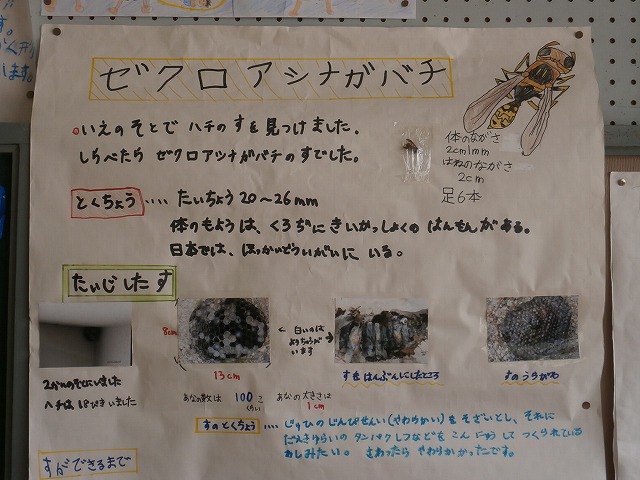 ゼクロアシナガバチ
○いえのそとで ハチのすを見つけました。
しらべたら ゼクロアツナがバチのすでした。
体のながさ
2cm1mm
はねのながさ
2cm
足6本
とくちょう‥‥たいちょう20〜26mm
体のもようは、くろぢにきいかっしょくの はんもんがある。
日本では、ほっかいどういがいに いる。
たいじしたす
8cm
13cm
←白いのは→
ようちゅうが
います
2かいのそとにいました
ハチは、18ぴきいました
あなの数は 100こ
くらい
あなの大きさは
1cm
すをはんぶんにしたところ
すのうらがわ
すのとくちょう‥‥じゅひのじんぴせんい(やわらかい)をそざいとし、それに
だえきゆらいの タンパクしつなどを こんにゅうして つくられている
わしみたい。 さわったら やわらかかったです。
すができるまで